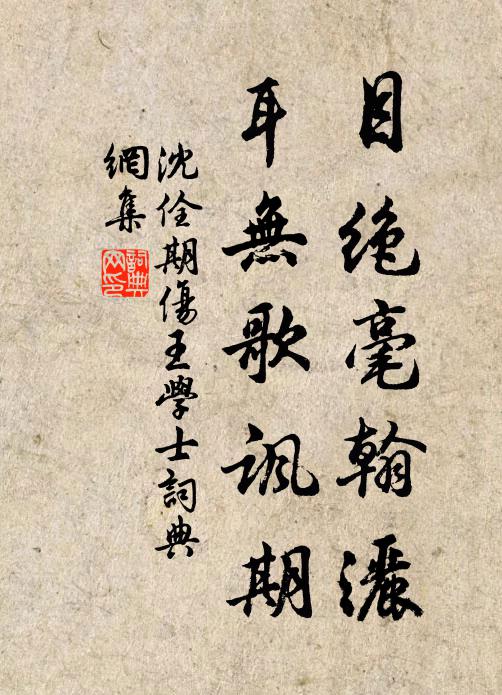 目絶毫翰灑
耳無歌諷期
沈佺期傷王學士詞典
網集
詞典
网印